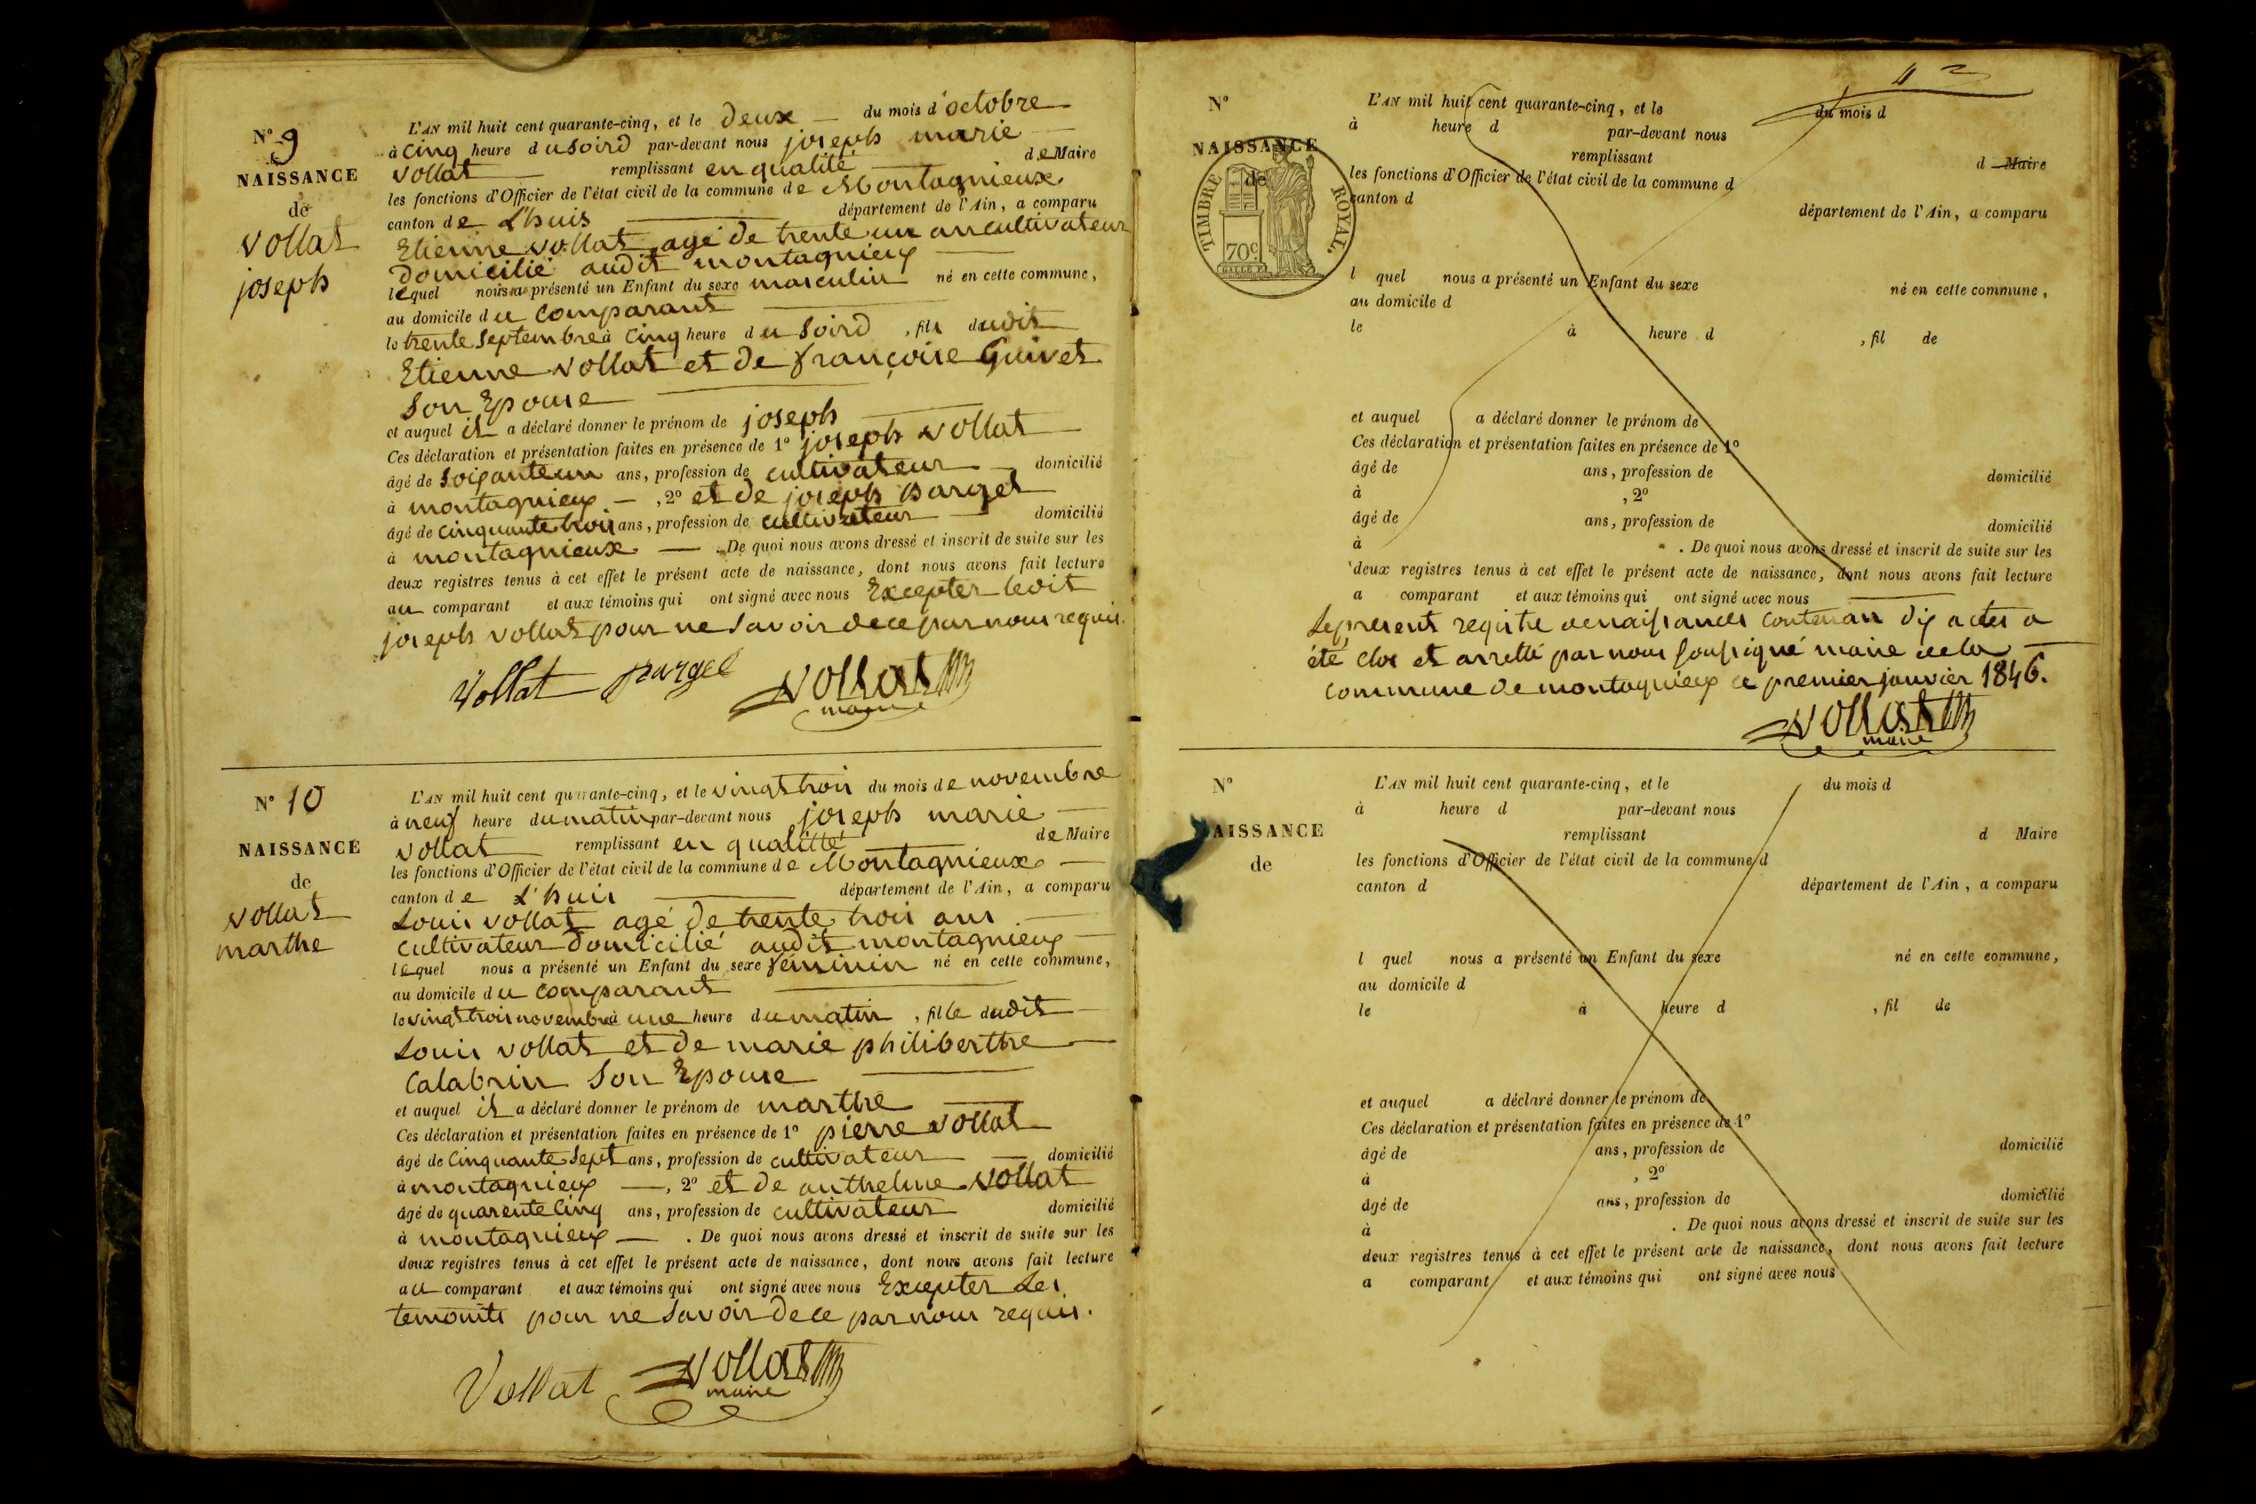 N° 9
NAISSANCE
de
Vollat
joseph
L'AN mil huit cent quarante-cinq, et le deux du mois d'octobre
à cinq heure du soird par-devant nous joseph marie
vollat remplissant en qualité de Maire
les fonctions d'Officier de l'état civil de la commune de Montagnieux
canton de L'huis département de l'Ain, a comparu
Etienne vollat agé de trente un an cultivateur
domicilié audit montagnieux
lequel nous a présenté un Enfant du sexe masculin né en cette commune,
au domicile du comparant
le trente septembre à cinq heure du soird, fils dudit
Etienne vollat et de françoise Guivet
son Epouse
et auquel il a déclaré donner le prénom de joseph
Ces déclaration et présentation faites en présence de 1° joseph vollat
âgé de soixanteun ans, profession de cultivateur domicilié
à montagnieux, 2° et de joseph Barget
âgé de cinquante trois ans, profession de cultivateur domicilié
à montagnieux. De quoi nous avons dressé et inscrit de suite sur les
deux registres tenus à cet effet le présent acte de naissance, dont nous avons fait lecture
au comparant et aux témoins qui ont signé avec nous Excepter ledit
joseph vollat pour ne savoir de ce par nous requis.
Vollat Barget Vollat
maire
N° 10
NAISSANCE
de
vollat
marthe
L'AN mil huit cent quarante-cinq, et le vingt trois du mois de novembre
à neuf heure du matin par-devant nous joseph marie
vollat remplissant en qualitté de Maire
les fonctions d'Officier de l'état civil de la commune de Montagnieux
canton de L'huis département de l'Ain, a comparu
Louis vollat agé de trente trois ans
cultivateur domicilié audit montagnieux
lequel nous a présenté un Enfant du sexe féminin né en cette commune,
au domicile du comparant
le vingt trois novembre à une heure du matin, fille dudit
Louis vollat et de marie philiberthe
Calabrin son Epouse
et auquel il a déclaré donner le prénom de marthe
Ces déclaration et présentation faites en présence de 1° pierre vollat
âgé de cinquante sept ans, profession de cultivateur domicilié
à montagnieux, 2° et de anthelme vollat
âgé de quarente cinq ans, profession de cultivateur domicilié
à montagnieux. De quoi nous avons dressé et inscrit de suite sur les
deux registres tenus à cet effet le présent acte de naissance, dont nous avons fait lecture
au comparant et aux témoins qui ont signé avec nous Excepter Les
temoints pour ne savoir de ce par nous requis.
Vollat Vollat
maire
N°
NAISSANCE
de
TIMBRE ROYAL.
70c.
L'AN mil huit cent quarante-cinq, et le du mois d
à heure d par-devant nous
remplissant d Maire
les fonctions d'Officier de l'état civil de la commune d
canton d département de l'Ain, a comparu
l quel nous a présenté un Enfant du sexe né en cette commune,
au domicile d
le à heure d, fil de
et auquel a déclaré donner le prénom de
Ces déclaration et présentation faites en présence de 1°
âgé de ans, profession de domicilié
à, 2°
âgé de ans, profession de domicilié
à. De quoi nous avons dressé et inscrit de suite sur les
deux registres tenus à cet effet le présent acte de naissance, dont nous avons fait lecture
a comparant et aux témoins qui ont signé avec nous
Le présent registre de naissances contenan dix actes a
été clos et arretté par nous soussigné maire de la
commune de montagnieux ce premier janvier 1846.
Vollat
maire
N°
NAISSANCE
de
L'AN mil huit cent quarante-cinq, et le du mois d
à heure d par-devant nous
remplissant d Maire
les fonctions d'Officier de l'état civil de la commune d
canton d département de l'Ain, a comparu
l quel nous a présenté un Enfant du sexe né en cette commune,
au domicile d
le à heure d, fil de
et auquel a déclaré donner le prénom de
Ces déclaration et présentation faites en présence de 1°
âgé de ans, profession de domicilié
à, 2°
âgé de ans, profession de domicilié
à. De quoi nous avons dressé et inscrit de suite sur les
deux registres tenus à cet effet le présent acte de naissance, dont nous avons fait lecture
a comparant et aux témoins qui ont signé avec nous